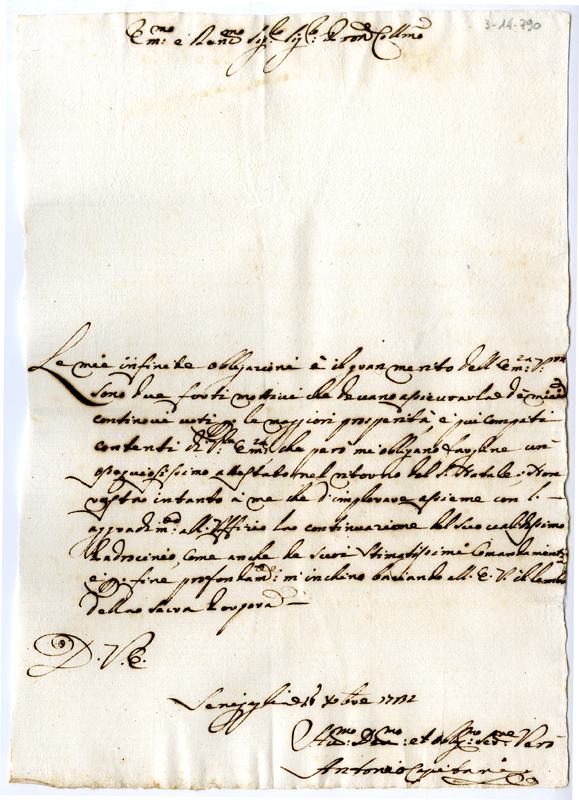 3-14-790
Em:mo e Rmo Sig:re Sig:re Pron Collmo
Le mie infinite obbligazioni è il gran merito dell Em:za V:ra
sono due forti mottivi che devano assicurarla de miei
continoui voti le maggiori prosperità e più compiti
contenti di Em:za che però me obligano farglene un
ossequiosissimo attestato nel ritorno del S. Natale; Non
resta intanto à me che d'implorare assieme con l'
aggradim:to all Uffizio la continuazione del suo validissimo
Padrocinio, come anche de suoi Stimatissimi Comandamenti
e p fine profondam:te m'inchino baciando all E. V. il lembo
della sacra Porpora
D. V. E.
Senigaglia Xbre
Hu:mo D:mo et obblig:mo ser:re Vero
Antonio